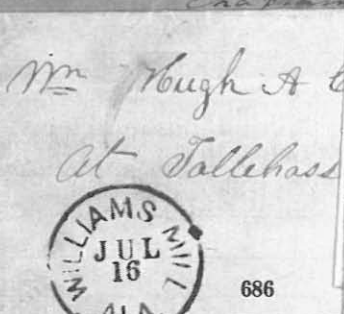 Mr Hugh A
At Tallehass
WILLIAMS MILL
JUL
16
ALA
686